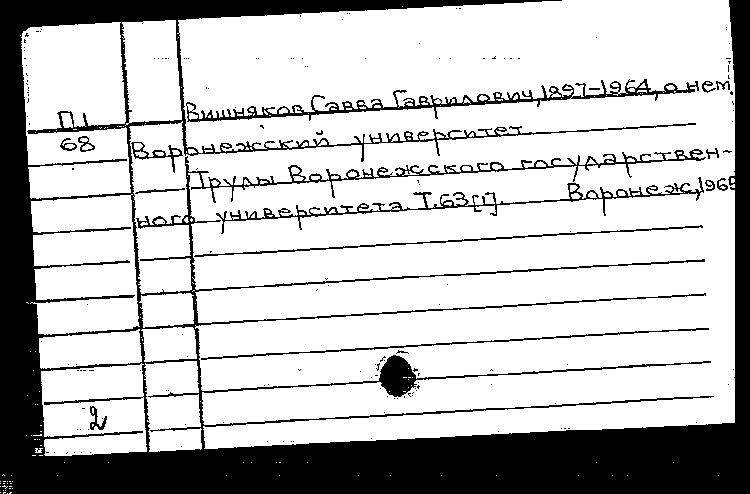 П1 Вишняков, Савва Гаврилович, 1897-1964, о нем
68 Воронежский университет
Труды Воронежского государствен-
ного университета. Т.63[1]. Воронеж, 1965
2